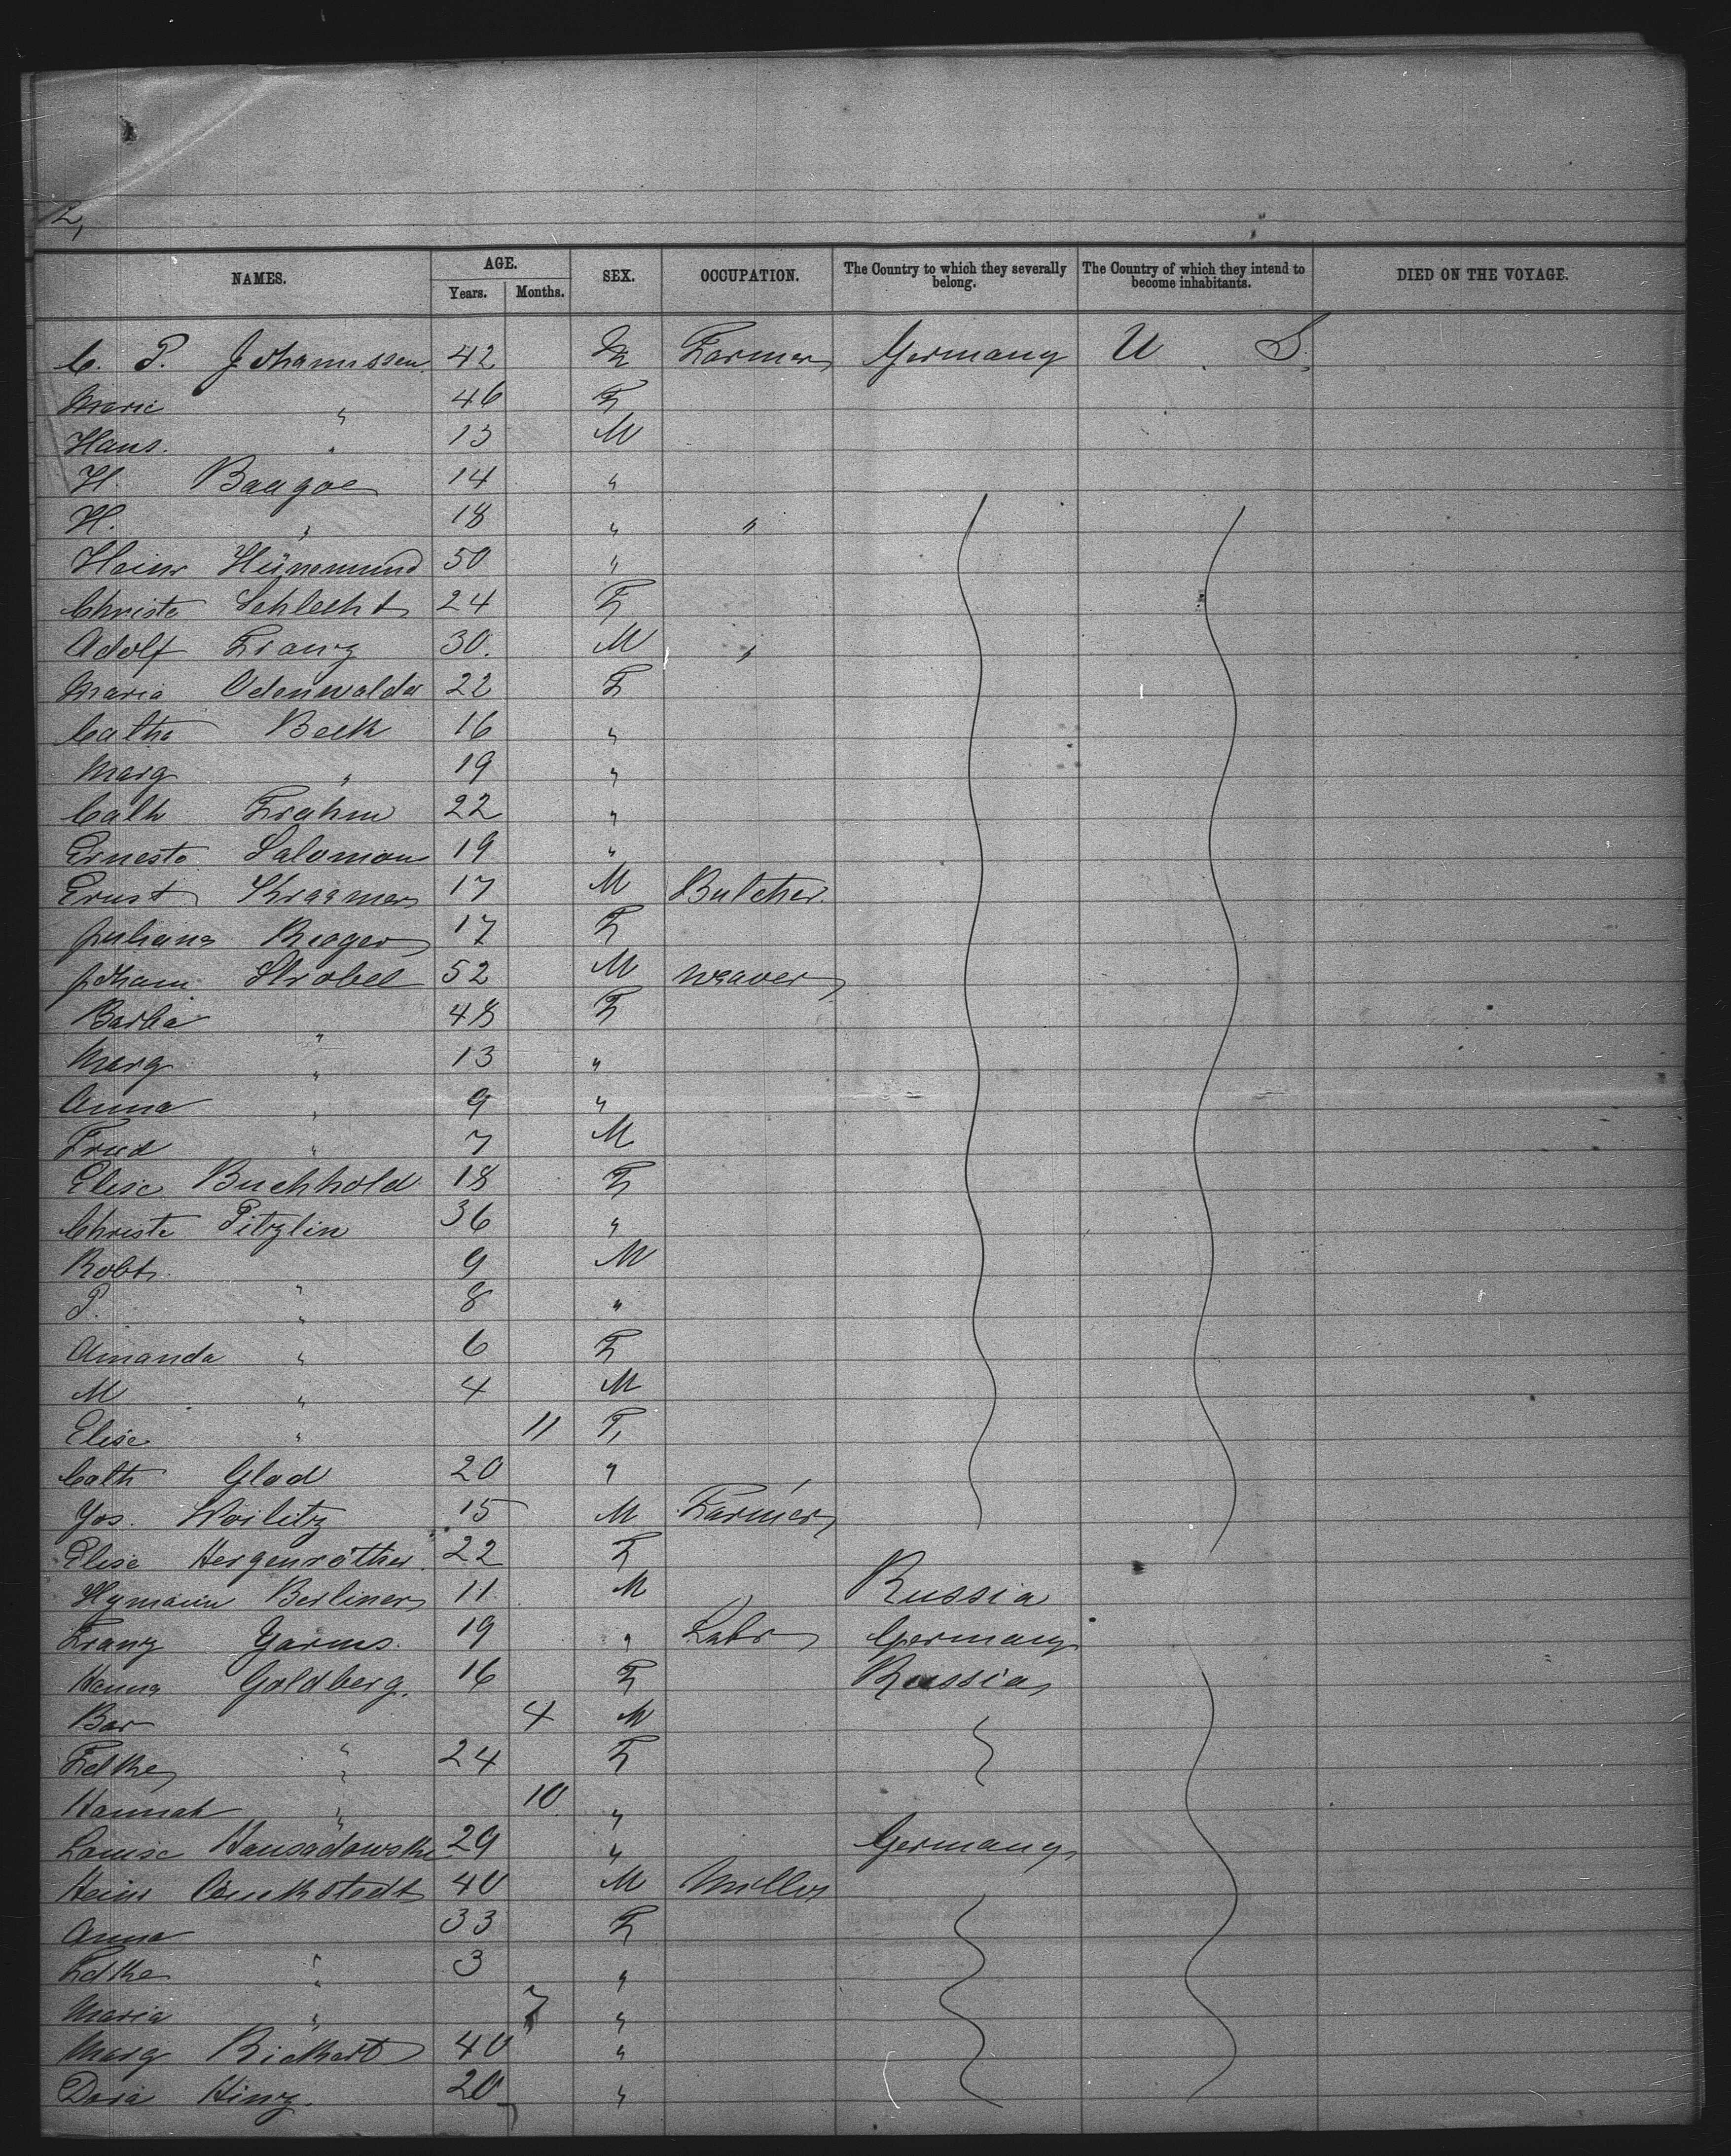 2,
NAMES. AGE. SEX. OCCUPATION. The Country to which they severally belong. The Country of which they intend to become inhabitants. DIED ON THE VOYAGE.
Years. Months.
C. P. Johannssen 42 M Farmer Germany U S.
Marie " 46 F
Hans. " 13 M
H. Baagoe 14 "
H. " 18 " "
Heinr Hünemund 50 "
Christe Schlecht 24 F
Adolf Franz 30. M "
Maria Odenwalder 22 F
Cathe Beck 16 "
Marg " 19 "
Cath Frahm 22 "
Ernesto Salomon 19 "
Ernst Kraamer 17 M Butcher.
Juliana Rieger 17 F
Johann Strobel 52 M Weaver
Barba " 48 F
Marg " 13 "
Anna " 9 "
Fried " 7 M
Elise Buchhold 18 F
Christe Pitzlin 36 "
Robt " 9 M
P. " 8 "
Amanda " 6 F
M " 4 M
Elise " 11 F
Cath Glod 20 "
Jos. Woilitz 15 M Farmer
Elise Hergenröther 22 F
Hymann Berliner 11 M Russia
Franz Garms. 19 " Labr Germany
Hanna Goldberg. 16 F Russia
Ber " 4 M
Felke " 24 F
Hannah " 10 "
Louise 29 " Germany
Heinr 40 M Miller
Anna " 33 F
Edke " 3 "
Maria " 7 "
Marg Rickert 40 "
Dora Hinz. 20 "